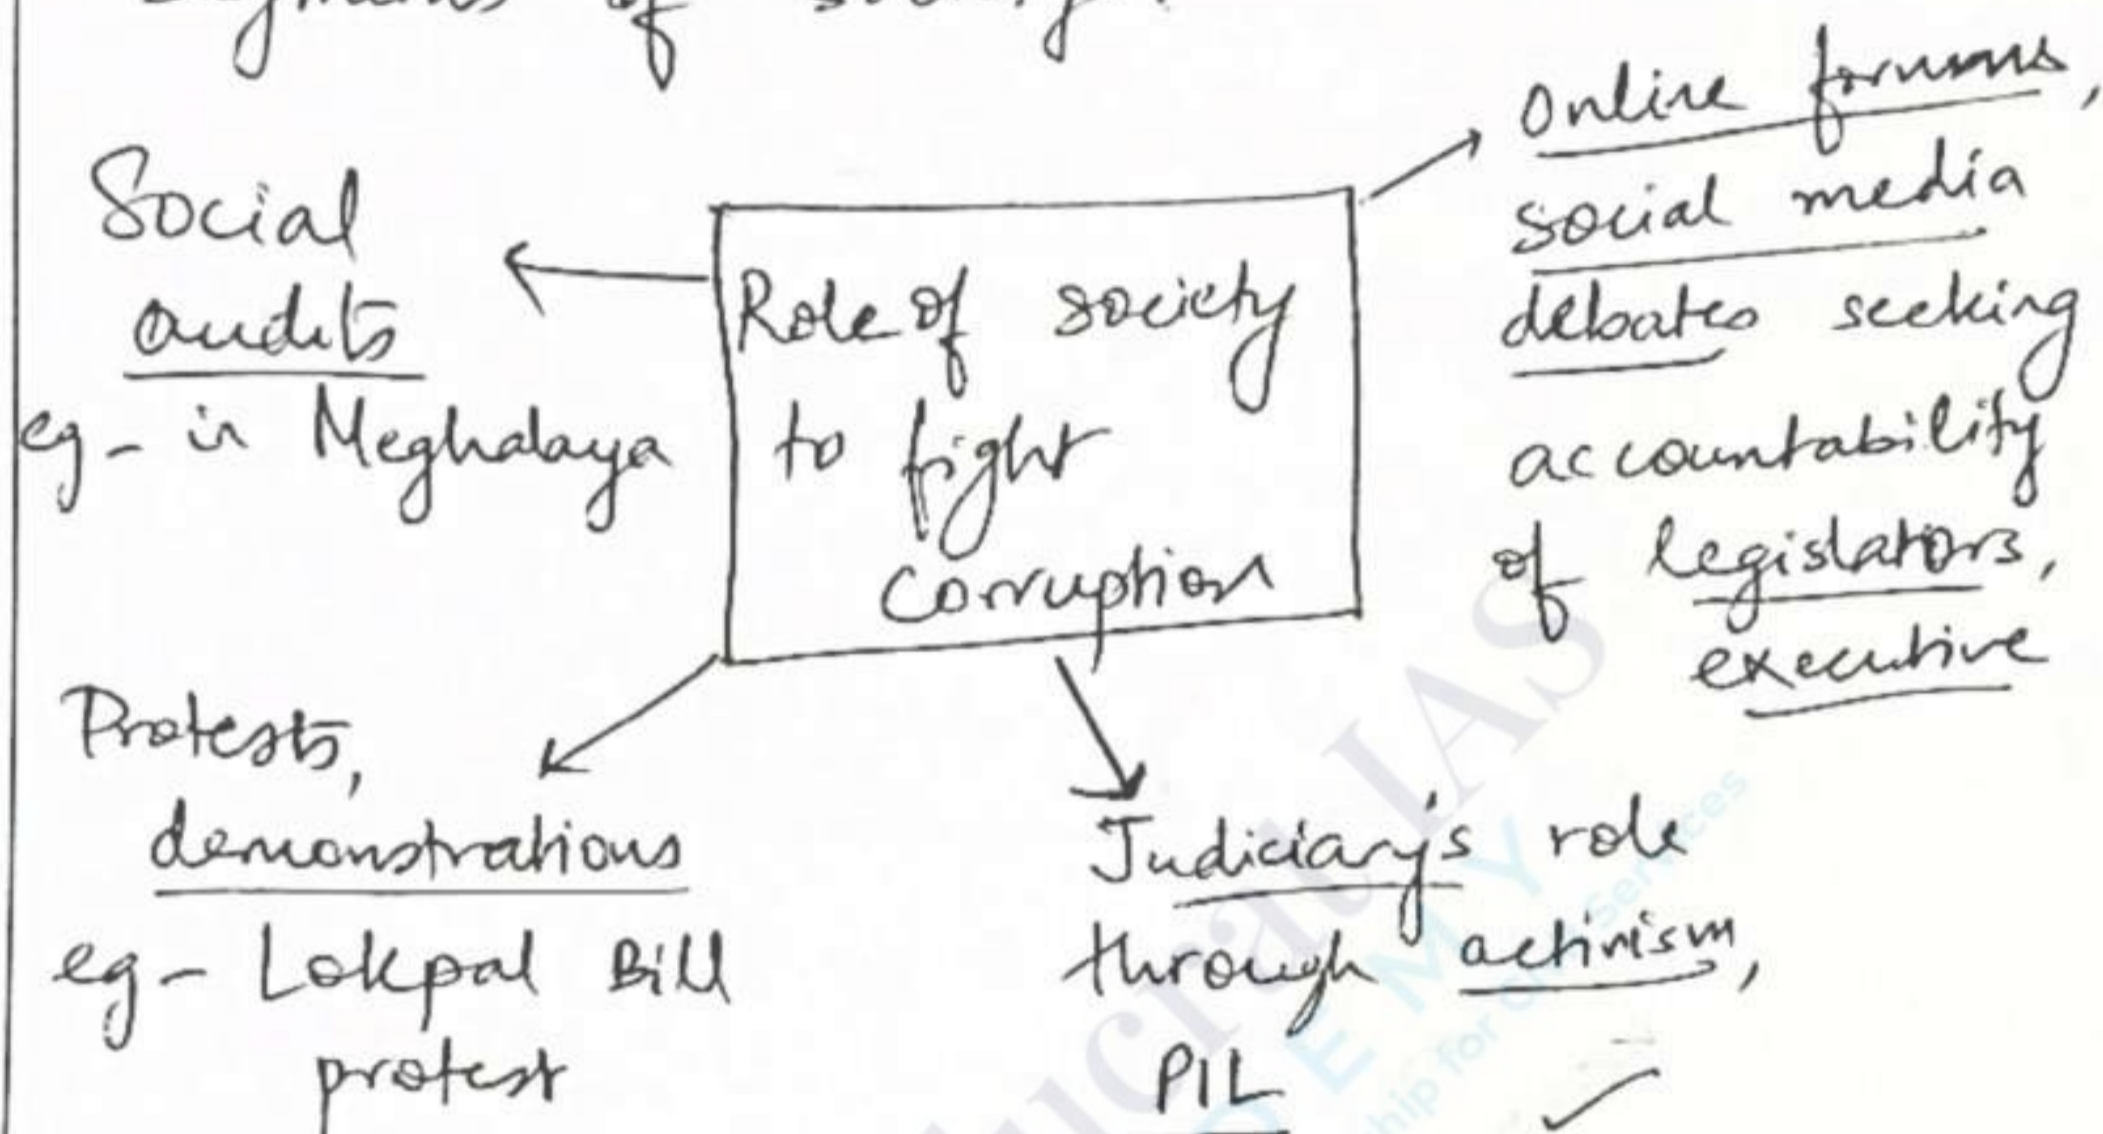 segments of society.
Social
audits
eg- in Meghalaya
Role of society
to fight
Corruption
Online forums,
social media
debates seeking
accountability
of legislators,
executive
Protests,
demonstrations
eg- Lokpal Bill
protest
Judiciary's role
through activism,
PIL